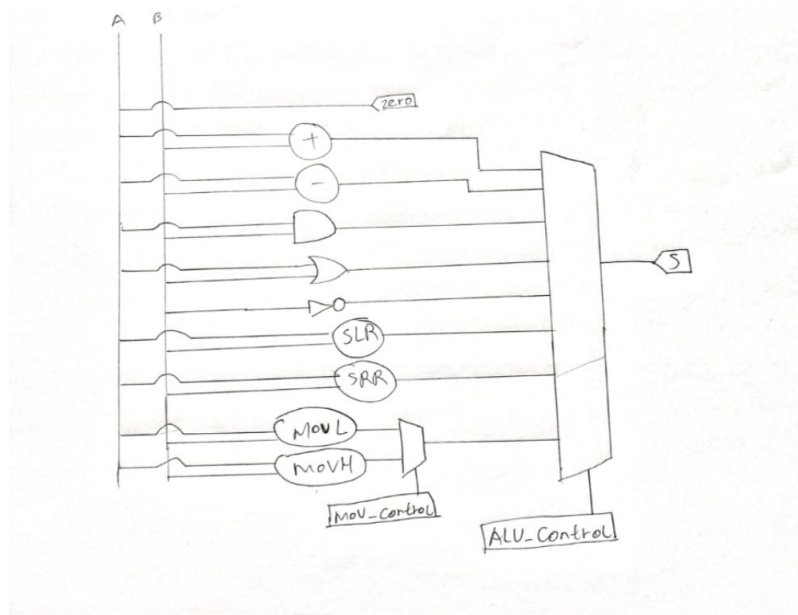 A B
zero
+
-
SLR
SRR
MOVL
MOVH
MOV_Control
ALU_Control
S